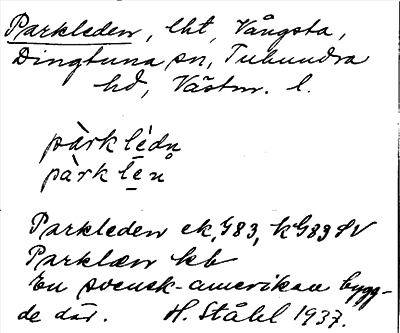 Parkleden, lht, Vångsta,
Dingtuna sn, Tuhundra
hd, Västm. l.
pàrklédn
pàrklen
Parkleden ek, G83, kG83 SV
Parklæn kb
En svensk-amerikan bygg-
de där. H. Ståhl 1937.